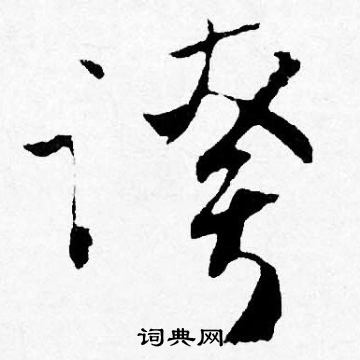 誇
词典网